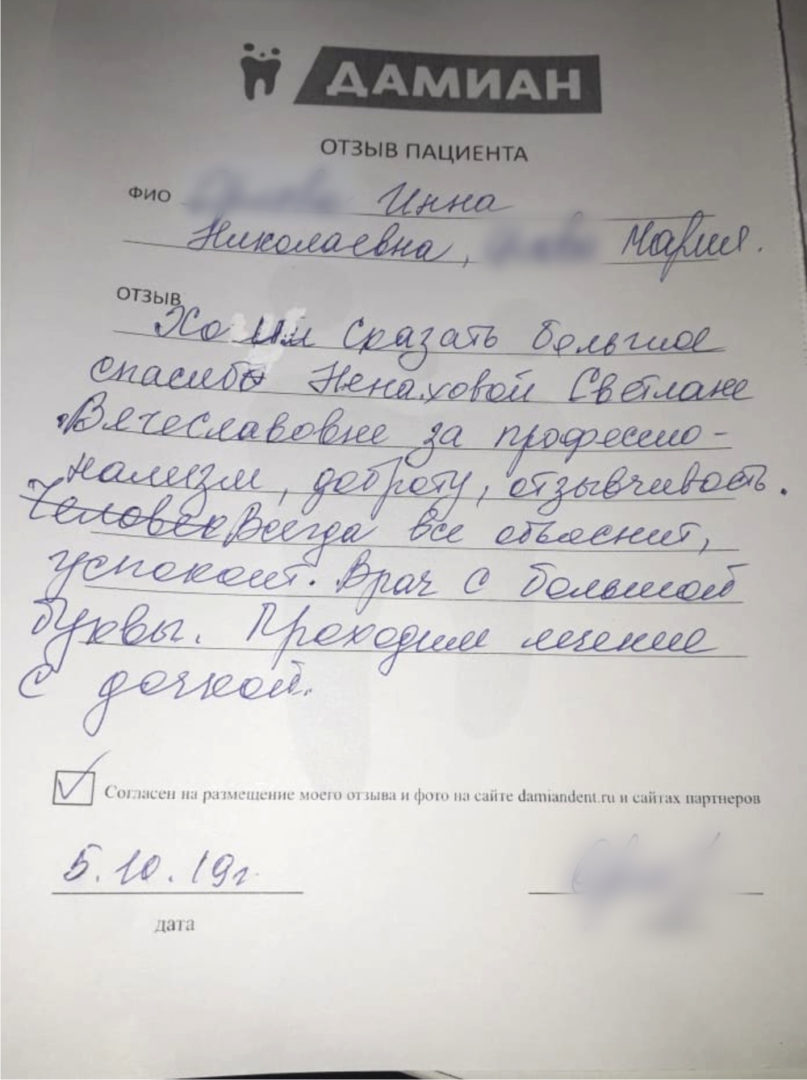 ДАМИАН
ОТЗЫВ ПАЦИЕНТА
ФИО Инна
Николаевна, Мария.
ОТЗЫВ
Хотим сказать большое
спасибо Ненаховой Светлане
Вячеславовне за профессио-
нализм, доброту, отзывчивость.
Человек Всегда все объяснит,
успокоит. Врач с большой
буквы. Проходим лечение
с дочкой.
Согласен на размещение моего отзыва и фото на сайте damiandent.ru и сайтах партнеров
5.10.19г.
дата